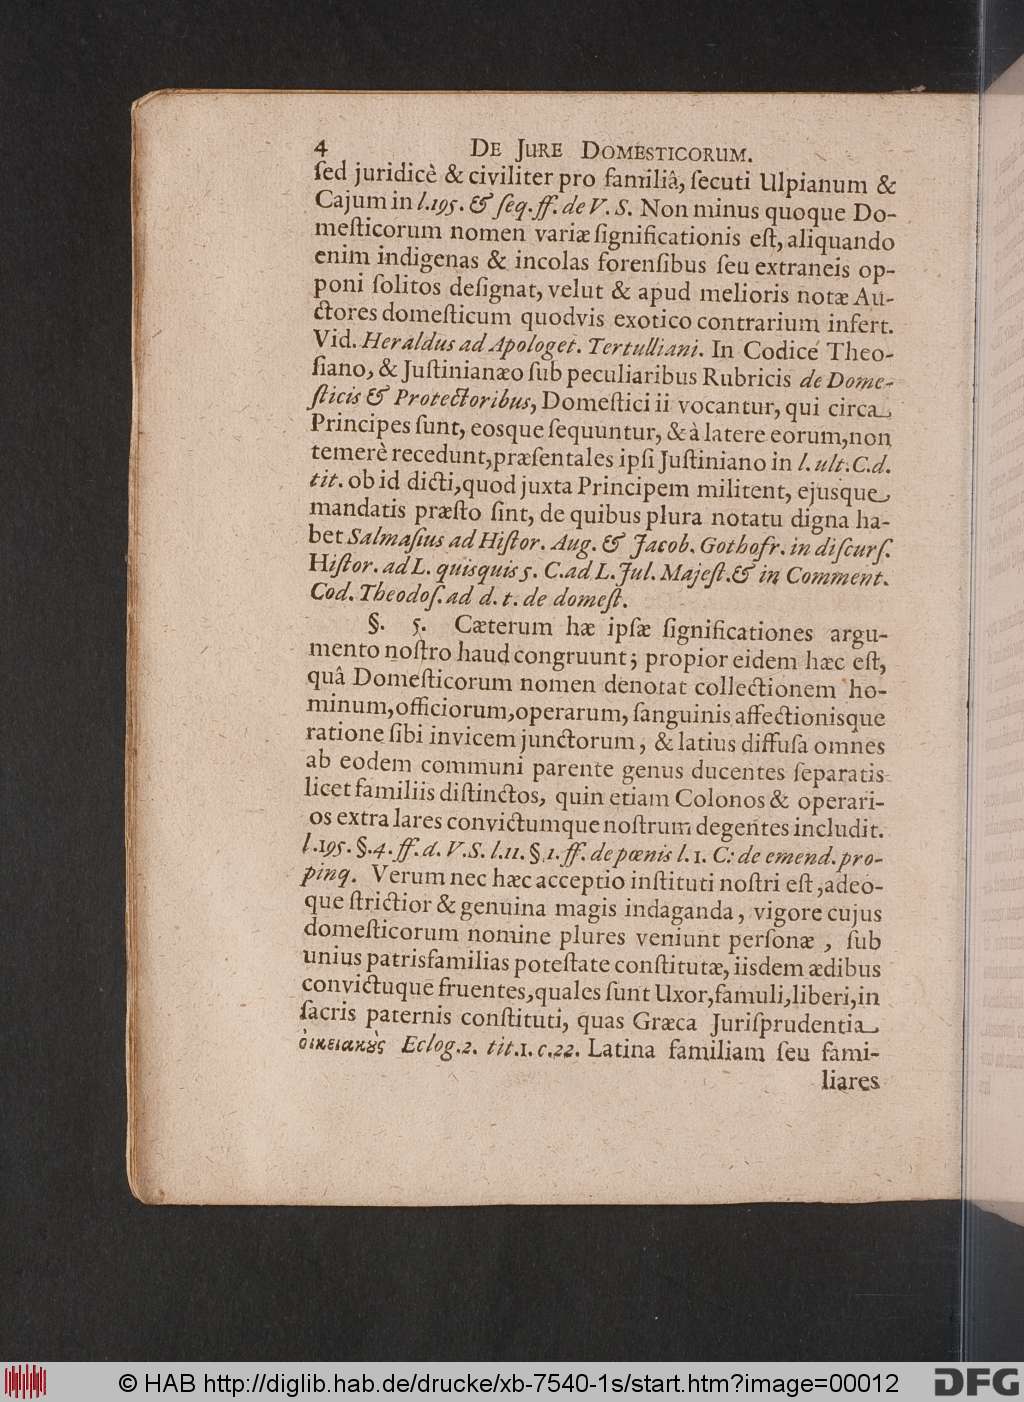 4 DE JURE DOMESTICORUM.
ſed juridicè & civiliter pro familiâ, ſecuti Ulpianum &
Cajum in l.195. & ſeq. ff. de V. S. Non minus quoque Do-
meſticorum nomen variæ ſignificationis eſt, aliquando
enim indigenas & incolas forenſibus ſeu extraneis op-
poni ſolitos deſignat, velut & apud melioris notæ Au-
ctores domeſticum quodvis exotico contrarium infert.
Vid. Heraldus ad Apologet. Tertulliani. In Codice Theo-
ſiano, & Juſtinianæo ſub peculiaribus Rubricis de Dome-
ſticis & Protectoribus, Domeſtici ii vocantur, qui circa
Principes ſunt, eosque ſequuntur, & à latere eorum, non
temerè recedunt, præſentales ipſi Juſtiniano in l. ult. C. d.
tit. ob id dicti, quod juxta Principem militent, ejusque
mandatis præſto ſint, de quibus plura notatu digna ha-
bet Salmaſius ad Hiſtor. Aug. & Jacob. Gothofr. in diſcurſ.
Hiſtor. ad L. quisquis 5. C. ad L. Jul. Majeſt. & in Comment.
Cod. Theodoſ. ad d. t. de domeſt.
§. 5. Cæterum hæ ipſæ ſignificationes argu-
mento noſtro haud congruunt; propior eidem hæc eſt,
quâ Domeſticorum nomen denotat collectionem ho-
minum, officiorum, operarum, ſanguinis affectionisque
ratione ſibi invicem junctorum, & latius diffuſa omnes
ab eodem communi parente genus ducentes ſeparatis
licet familiis diſtinctos, quin etiam Colonos & operari-
os extra lares convictumque noſtrum degentes includit.
l.195. §.4. ff. d. V.S. l.11. §.1. ff. de pœnis l.1. C: de emend. pro-
pinq. Verum nec hæc acceptio inſtituti noſtri eſt, adeo-
que ſtrictior & genuina magis indaganda, vigore cujus
domeſticorum nomine plures veniunt perſonæ, ſub
unius patrisfamilias poteſtate conſtitutæ, iisdem ædibus
convictuque fruentes, quales ſunt Uxor, famuli, liberi, in
ſacris paternis conſtituti, quas Græca Juriſprudentia
ὀικειακȣ̀ς Eclog. 2. tit.1. c.22. Latina familiam ſeu fami-
liares
© HAB http://diglib.hab.de/drucke/xb-7540-1s/start.htm?image=00012
DFG